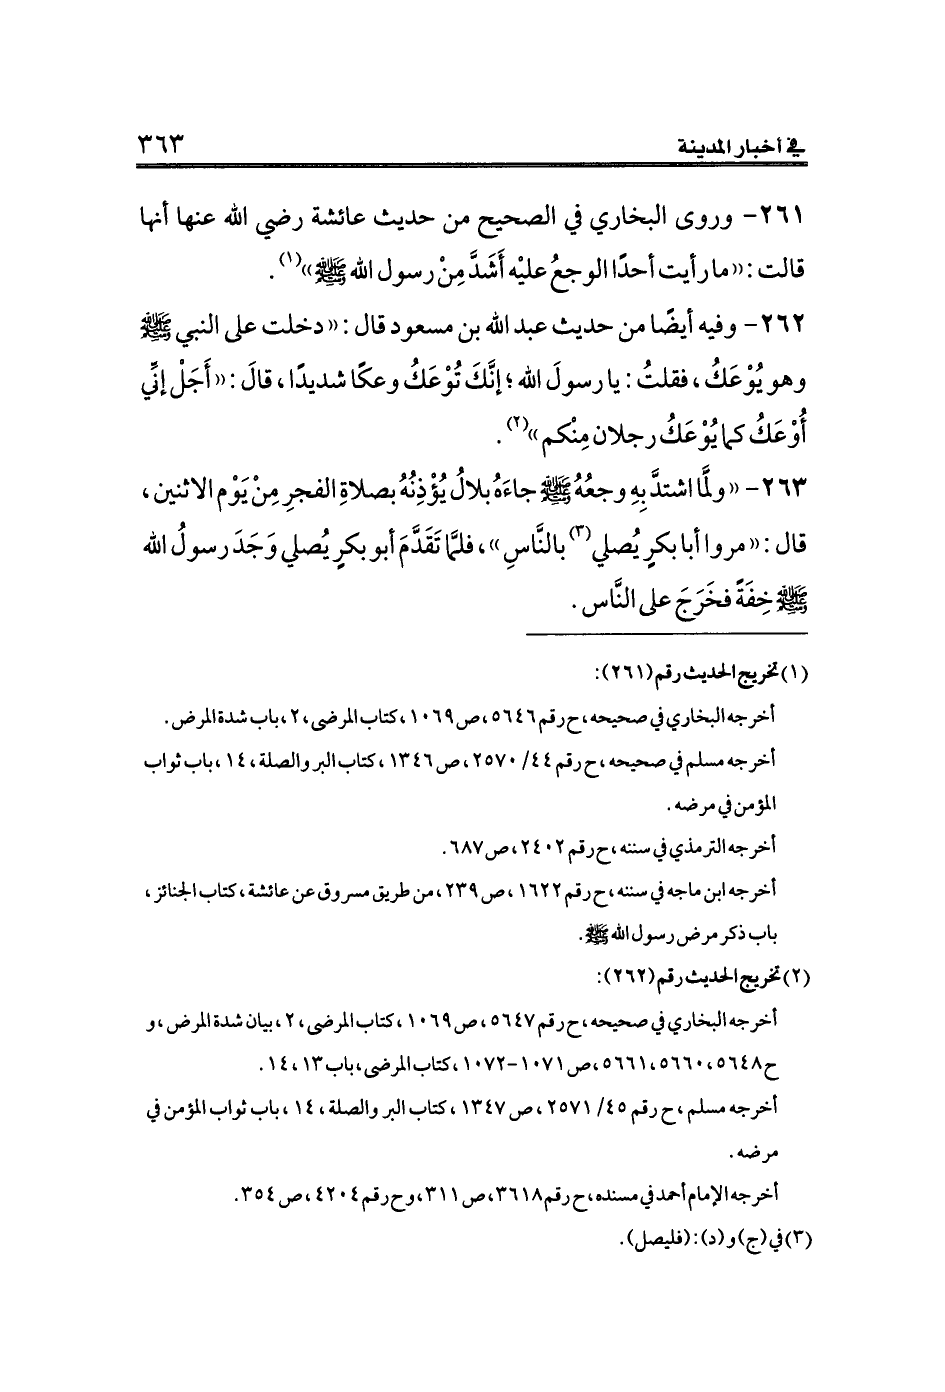 في أخبار المدينة ٣٦٣
٢٦١- وروى البخاري في الصحيح من حديث عائشة رضي الله عنها أنها
قالت : «ما رأيت أحدًا الوجعُ عليْه أَشَدَّ مِنْ رسول الله ﷺ»(١) .
٢٦٢- وفيه أيضًا من حديث عبد الله بن مسعود قال : «دخلت على النبي ﷺ
وهو يُوْعَكُ ، فقلتُ : يا رسولَ الله ؛ إنَّكَ تُوْعَكُ وعكًا شديدًا ، قالَ : «أَجَلْ إنِّي
أُوْعَكُ كما يُوْعَكُ رجلان مِنْكم»(٢) .
٢٦٣- «ولمَّا اشتدَّ بِهِ وجعُهُ ﷺ جاءَهُ بلالُ يُؤْذِنُهُ بصلاةِ الفجرِ مِنْ يَوْم الاثنين ،
قال : «مروا أبا بكرٍ يُصلي(٣) بالنَّاسِ» ، فلمَّا تَقَدَّمَ أبو بكرٍ يُصلي وَجَدَ رسولُ الله
ﷺ خِفَةً فخَرَجَ على النَّاس .
(١) تخريج الحديث رقم (٢٦١):
أخرجه البخاري في صحيحه ، ح رقم ٥٦٤٦ ، ص ١٠٦٩ ، كتاب المرضى ، ٢ ، باب شدة المرض .
أخرجه مسلم في صحيحه ، ح رقم ٤٤/ ٢٥٧٠ ، ص ١٣٤٦ ، كتاب البر والصلة ، ١٤ ، باب ثواب
المؤمن في مرضه .
أخرجه الترمذي في سننه ، ح رقم ٢٤٠٢ ، ص ٦٨٧ .
أخرجه ابن ماجه في سننه ، ح رقم ١٦٢٢ ، ص ٢٣٩ ، من طريق مسروق عن عائشة ، كتاب الجنائز ،
باب ذكر مرض رسول الله ﷺ .
(٢) تخريج الحديث رقم (٢٦٢):
أخرجه البخاري في صحيحه ، ح رقم ٥٦٤٧ ، ص ١٠٦٩ ، كتاب المرضى ، ٢ ، بيان شدة المرض ، و
ح ٥٦٤٨ ، ٥٦٦٠ ، ٥٦٦١ ، ص ١٠٧١-١٠٧٢ ، كتاب المرضى ، باب ١٣ ، ١٤ .
أخرجه مسلم ، ح رقم ٤٥/ ٢٥٧١ ، ص ١٣٤٧ ، كتاب البر والصلة ، ١٤ ، باب ثواب المؤمن في
مرضه .
أخرجه الإمام أحمد في مسنده ، ح رقم ٣٦١٨ ، ص ٣١١ ، وح رقم ٤٢٠٤ ، ص ٣٥٤ .
(٣) في (ج) و (د) : (فليصل) .